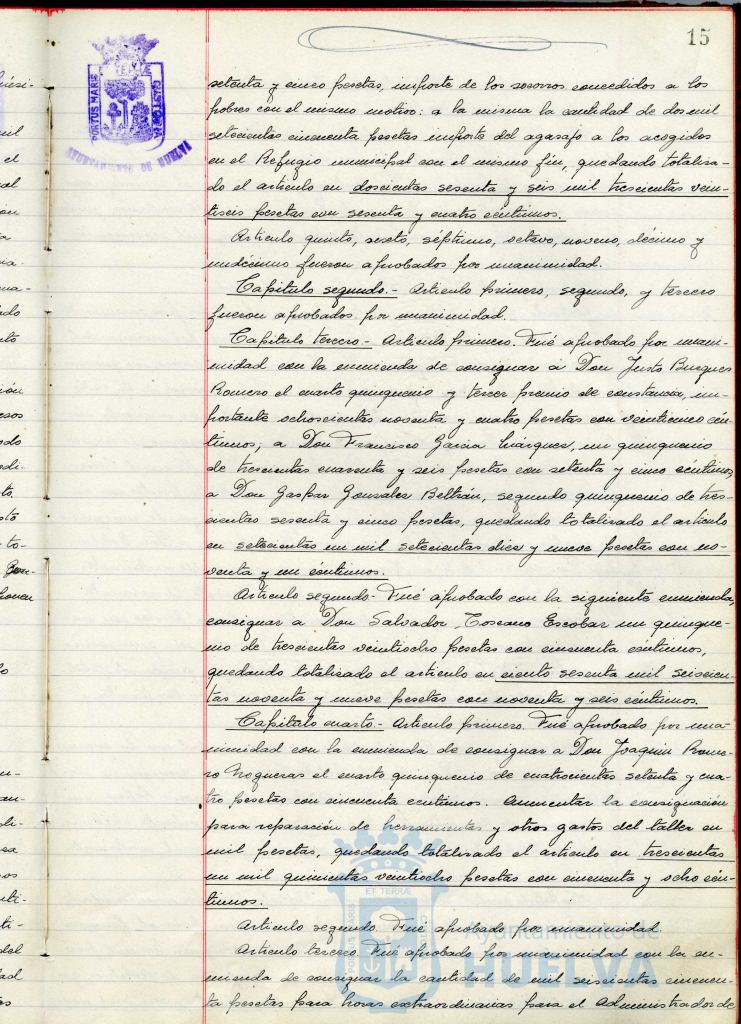 15
PORTUS MARIS
AYUNTAMIENTO DE HUELVA
setenta y cinco pesetas, importe de los socorros concedidos a los
pobres con el mismo motivo: a la misma la cantidad de dos mil
setecientas cincuenta pesetas importe del agasajo a los acogidos
en el Refugio municipal con el mismo fin, quedando totaliza-
do el articulo en doscientas sesenta y seis mil trescientas vein-
tiseis pesetas con sesenta y cuatro céntimos.
Articulo quinto, sexto, séptimo, octavo, noveno, décimo y
undécimo fueron aprobados por unanimidad.
Capitulo segundo.- Articulo primero, segundo, y tercero
fueron aprobados por unanimidad.
Capitulo tercero- Articulo primero. Fué aprobado por unani-
midad con la enmienda de consignar a Don Justo Burgues
Romero el cuarto quinquenio y tercer premio de constancia, im-
portante ochocientas noventa y cuatro pesetas con veinticinco cén-
timos; a Don Francisco Garcia Márquez, un quinquenio
de trescientas cuarenta y seis pesetas con setenta y cinco céntimos,
a Don Gaspar Gonzalez Beltrán, segundo quinquenio de tres-
cientas sesenta y cinco pesetas, quedando totalizado el articulo
en setecientas un mil setecientas diez y nueve pesetas con no-
venta y un céntimos.
Articulo segundo- Fué aprobado con la siguiente enmienda,
consignar a Don Salvador Toscano Escobar un quinque-
nio de trescientas veintiocho pesetas con cincuenta centimos,
quedando totalizado el articulo en ciento sesenta mil seiscien-
tas noventa y nueve pesetas con noventa y seis céntimos.
Capitulo cuarto.- Articulo primero. Fué aprobado por una-
nimidad con la enmienda de consignar a Don Joaquin Rome-
ro Nogueras el cuarto quinquenio de cuatrocientas setenta y cua-
tro pesetas con cincuenta centimos. Aumentar la consignación
para reparación de herramientas y otros gastos del taller en
mil pesetas, quedando totalizado el articulo en trescientas
un mil quinientas veintiocho pesetas con cincuenta y ocho cén-
timos.
Articulo segundo. Fué aprobado por unanimidad.
Articulo tercero. Fué aprobado por unanimidad con la en-
mienda de consignar la cantidad de mil seiscientas cincuen-
ta pesetas para horas extraordinarias para el Administrador de
Ayuntamiento de
HUELVA